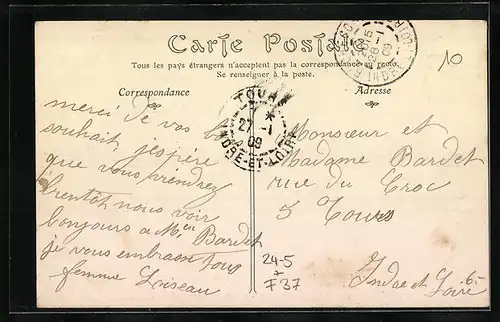 Carte Postale
Tous les pays étrangers n'acceptent pas la correspondance au recto.
Se renseigner à la poste.
Correspondance
Adresse
10
TOURS
27 -1
09
INDRE-ET-LOIRE
28 -1
09
merci de vos bo
souhait, j'espère
que vous viendrez
bientôt nous voir
bonjours a Bardet
je vous embrasse tous
femme Loiseau
Monsieur et
Madame Bardet
rue du Croc
5 Tours
Indre et Loire
24-5
F37
6-